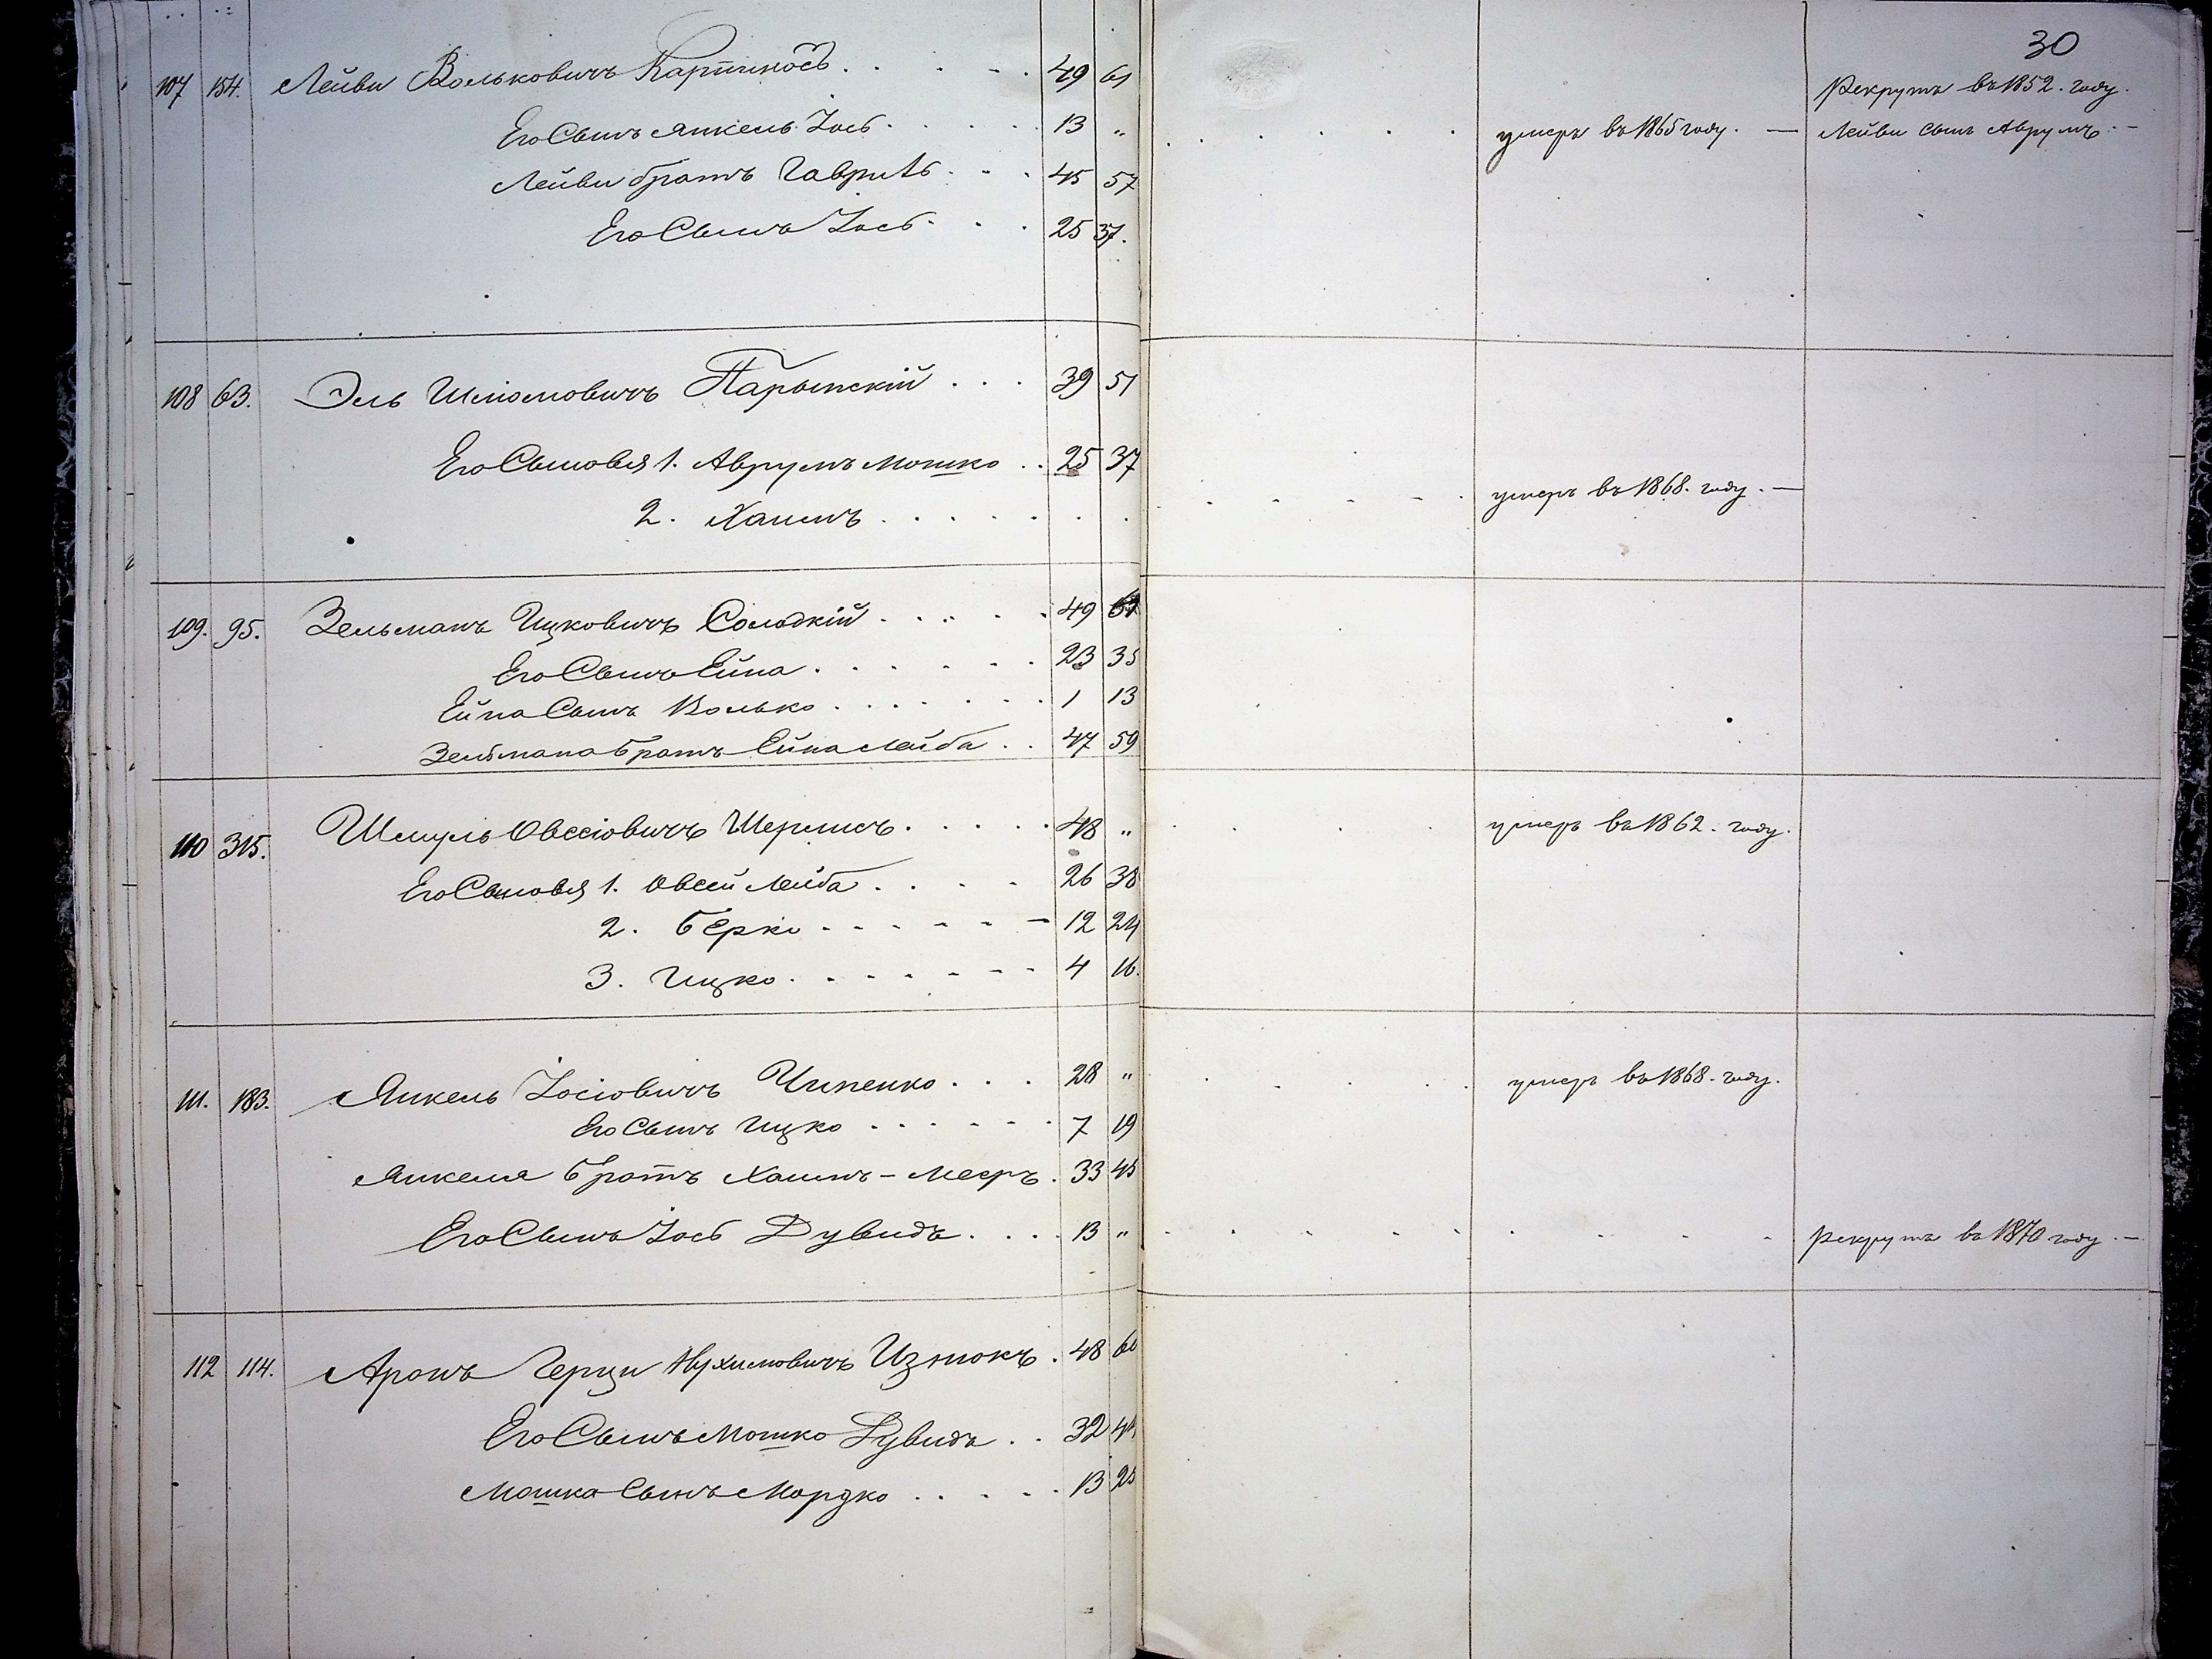 30
107 154. Лейви Вольковичъ . . . . 49 61 Рекрутъ въ 1852. году.
Его Сынъ Янкель Іось . . . . . 13 " . . . . . . умеръ въ 1865 году. — Лейви сынъ Аврумъ. —
Лейви братъ Гаврилъ . . . 45 57
Его Сынъ Іось . . . 25 37.
108 63. Эль Шліомовичъ Парынскій . . . 39 51
Его Сыновья 1. Аврумъ Мошко . . 25 37
2. Хаимъ . . . . . . . . . . . . умеръ въ 1868. году. —
109. 95. Зельманъ Ицковичъ Солодкій . . . . . 49 61
Его Сынъ Ейна . . . . . . 23 35
Ейна Сынъ Волько . . . . . . 1 13
Зельмана братъ Ейна Лейба . . 47 59
110 315. Шмуль Овсіовичъ . . . . . 48 " . . . . умеръ въ 1862. году.
Его Сыновья 1. Овсей Лейба . . . . 26 38
2. Берко - - - - - - 12 24
3. Ицко . - - - - - - 4 16.
111. 183. Янкель Іосіовичъ Чипенко . . . 28 " . . . . . умеръ въ 1868. году.
Его Сынъ Ицко . . . . . . 7 19
Янкеля братъ Хаимъ - Мееръ . 33 45
Его Сынъ Іось Дувидъ . . . . 13 " . . . . . . . . . рекрутъ въ 1870 году. —
112 114. Аронъ Герци Нухимовичъ Изтокъ . 48 60
Его Сынъ Мошко Дувидъ . . 32 44
Мошка Сынъ Мордко . . . . . 13 25